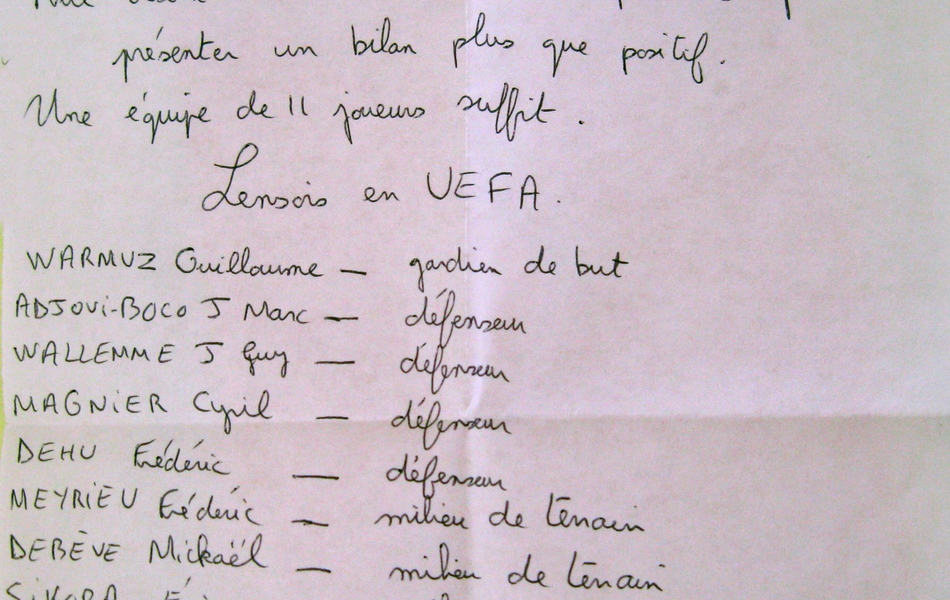 présenter un bilan plus que positif.
Une équipe de 11 joueurs suffit.
Lensois en UEFA.
WARMUZ Guillaume — gardien de but
ADJOVI-BOCO J Marc — défenseur
WALLEMME J Guy — défenseur
MAGNIER Cyril — défenseur
DEHU Frédéric — défenseur
MEYRIEU Frédéric — milieu de terrain
DEBÈVE Mickaël — milieu de terrain
SIKORA